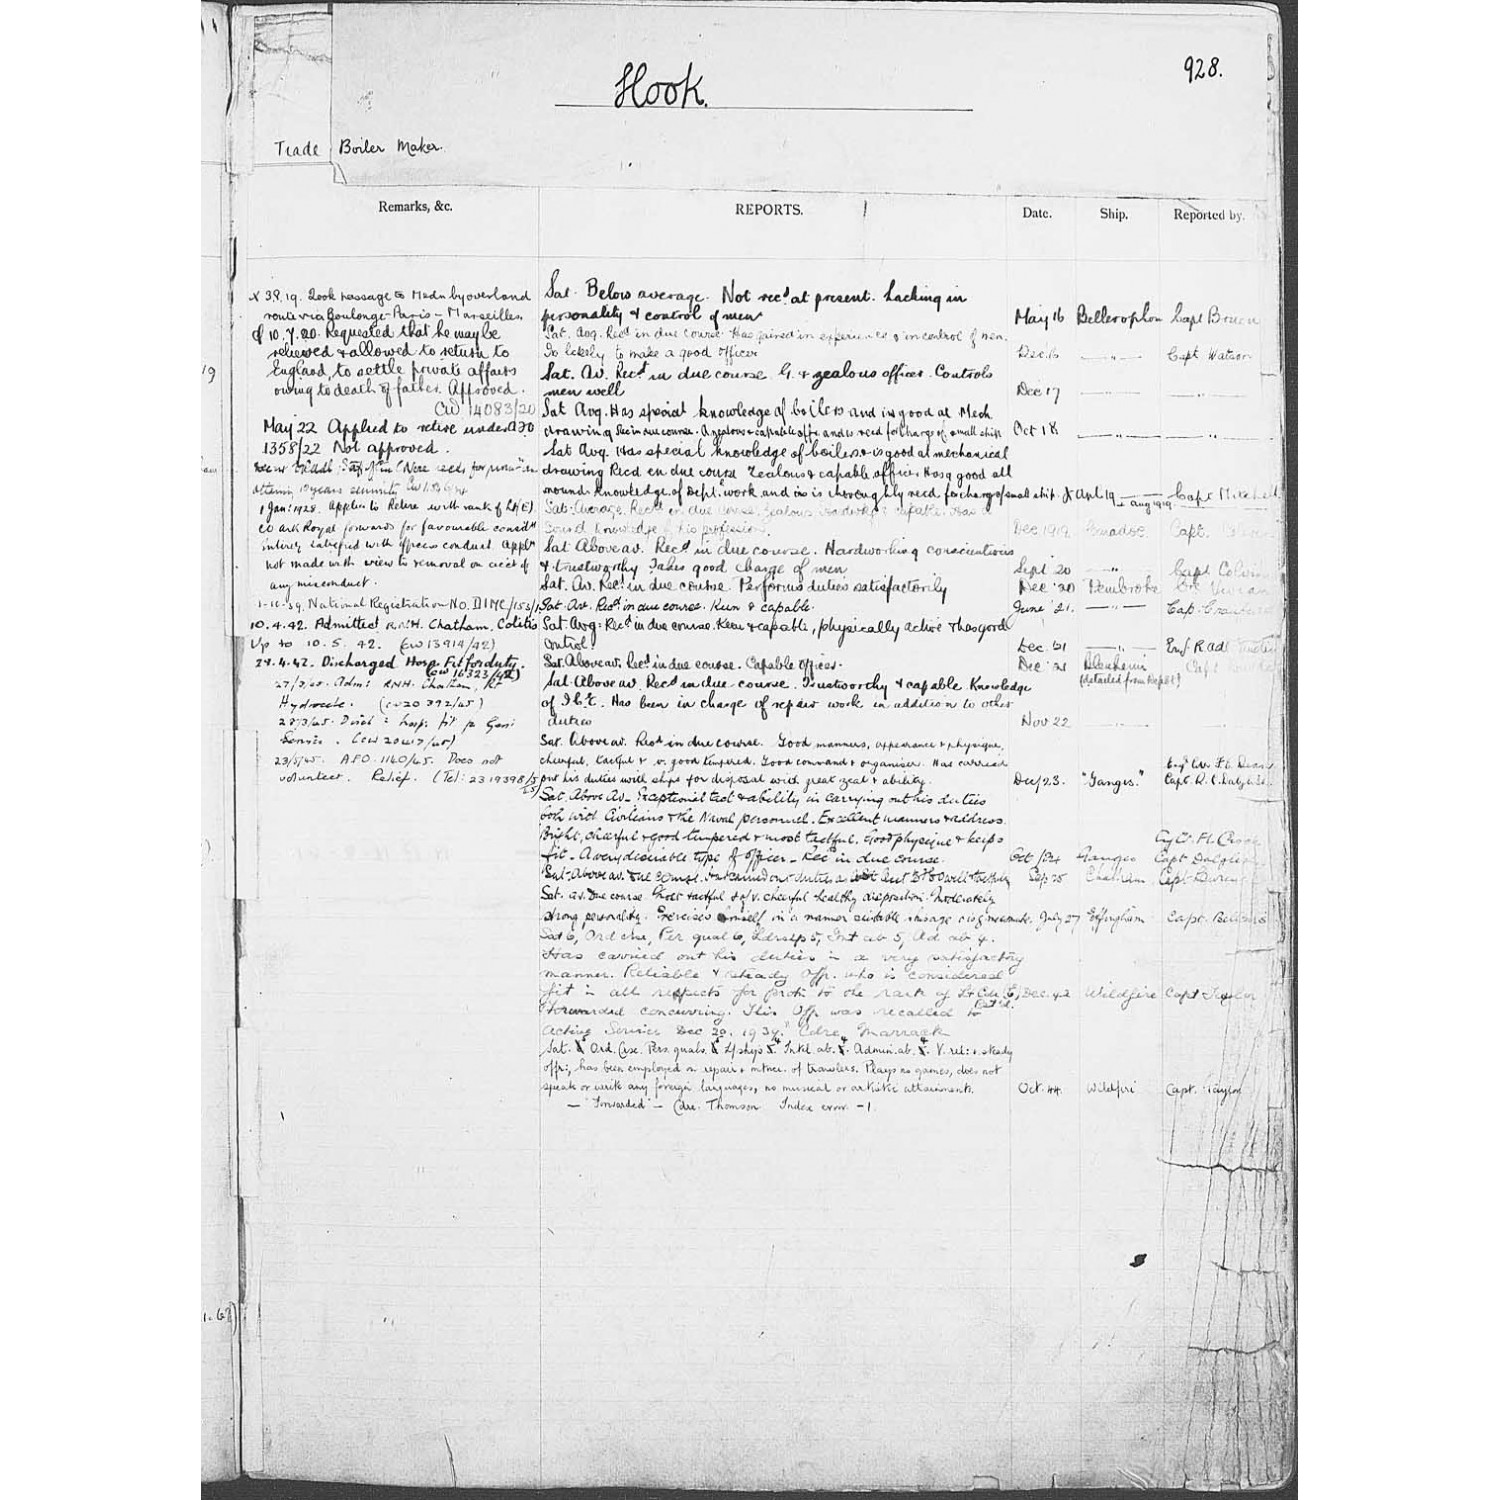 Hook.
928.
Trade Boiler Maker.
Remarks, &c.
REPORTS.
Date.
Ship.
Reported by.
3.8.19. Took passage to Medn by overland
route via Boulonge-Paris - Marseilles
10.7.20. Requested that he may be
relieved & allowed to return to
England, to settle private affairs
owing to death of father. Approved.
CW 14083/20
May 22 Applied to retire under
1358/22 Not approved.
1 Jan: 1928. Applies to Retire with rank of Lt(E)
CO Ark Royal forwards for favourable considn
entirely satisfied with officers conduct. Appln
not made with view to removal on acct of
any misconduct.
National Registration No.
10.4.42. Admitted R.N.H. Chatham, Colitis
Up to 10.5.42. (CW 13914/42)
24.4.42. Discharged Hosp. Fit for duty.
(CW 16323/42)
Adm: RNH. Chatham,
Hydrocele. (CW20392/45)
Disch: hosp: fit for Genl
Service.
23/5/45. A.F.O. 1140/45. Does not
volunteer. Relief. (Tel: 231939B/5
Sat. Below average. Not recd at present. Lacking in
personality & control of men
May 16 Bellerophon Capt Bruen
Sat. Avg. Recd in due course. Has gained in experience & in control of men.
Is likely to make a good officer
Dec 16 —"— Capt Watson
Sat. Av. Recd in due course. G. & zealous officer. Controls
men well
Dec 17 —"— —"—
Sat Avg. Has special knowledge of boilers and is good at Mech
drawing Rec in due course. A zealous & capable offr. and is recd for charge of small ship
Oct 18 —"— —"—
Sat Avg. Has special knowledge of boilers & is good at mechanical
drawing Recd in due course Zealous & capable officer. Has a good all
round knowledge of Dept. work and is thoroughly recd for charge of small ship.
Apl 19 —"— Capt Mitchell
Aug 1919
Sat. Average. Recd in due course. Zealous hardworkg & capable. Has a
sound knowledge of his profession.
Dec 1919 Capt.
Sat Above av. Recd in due course. Hardworking conscientious
& trustworthy Takes good charge of men
Sept 20 —"— Capt Colvin
Sat. Av. Recd in due course. Performs duties satisfactorily
Dec '20 Pembroke Vivian
Sat. Av. Recd in due course. Keen & capable.
June '21. —"— Cap.
Sat. Avg. Recd in due course. Keen & capable, physically active & has good
control.
Dec. '21 —"—
Sat. Above av. Recd in due course. Capable officer.
Dec '21 Blenheim Capt
(detailed from Repat)
Sat. Above av. Recd in due course. Trustworthy & capable. Knowledge
of I.C.E. Has been in charge of repair work in addition to other
duties
Nov 22
Sat. Above av. Recd in due course. Good manners, appearance & physique,
cheerful, tactful & v. good tempered. Good command & organiser. Has carried
out his duties with ships for disposal with great zeal & ability.
Dec/23. "Ganges."
Sat. Above Av. Exceptional tact & ability in carrying out his duties
both with Civilians & the Naval personnel. Excellent manners & address.
Bright, cheerful & good tempered & most tactful. Good physique & keeps
fit. A very desirable type of officer. Rec in due course.
Oct /24 Ganges
Sat. Above av. Due course.
Sep 25 Chatham Capt
Sat. av. Due course. Most tactful & of v. cheerful healthy disposition. Moderately
strong personality. Exercises himself in a manner suitable
July 27 Effingham Capt.
Sat 6, Ord crse, Per qual 6, Ldrship 5, Int ab 5, Ad ab 4.
Has carried out his duties in a very satisfactory
manner. Reliable & steady Offr. who is considered
fit in all respects for prom to the rank of Lt Cdr (E)
Dec. 42 Wildfire Capt Taylor
Forwarded concurring. This Offr was recalled to
Active Service Dec 20. 1939. Cdre, Marrack
Sat. Ord. Crse. Pers. quals. L'ships Intel. ab. Admin. ab. V. rel: & steady
offr:, has been employed on repair & mtnce. of trawlers. Plays no games, does not
speak or write any foreign languages, no musical or artistic attainments.
Oct. 44. Wildfire Capt. Taylor
— "Forwarded" — Cdre. Thomson Index error -1.